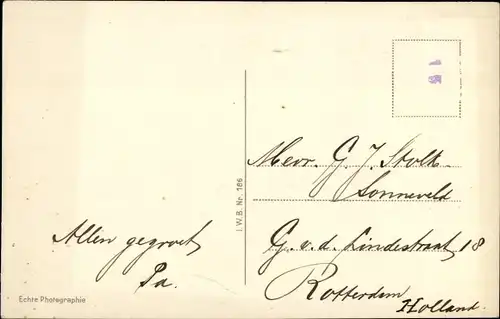 Allen gegroet,
Pa.
Echte Photographie
I.W.B. Nr. 186
15
Mevr. G. J. Stolk-
Sonneveld
G. v. d. Lindestraat 18
Rotterdam
Holland.